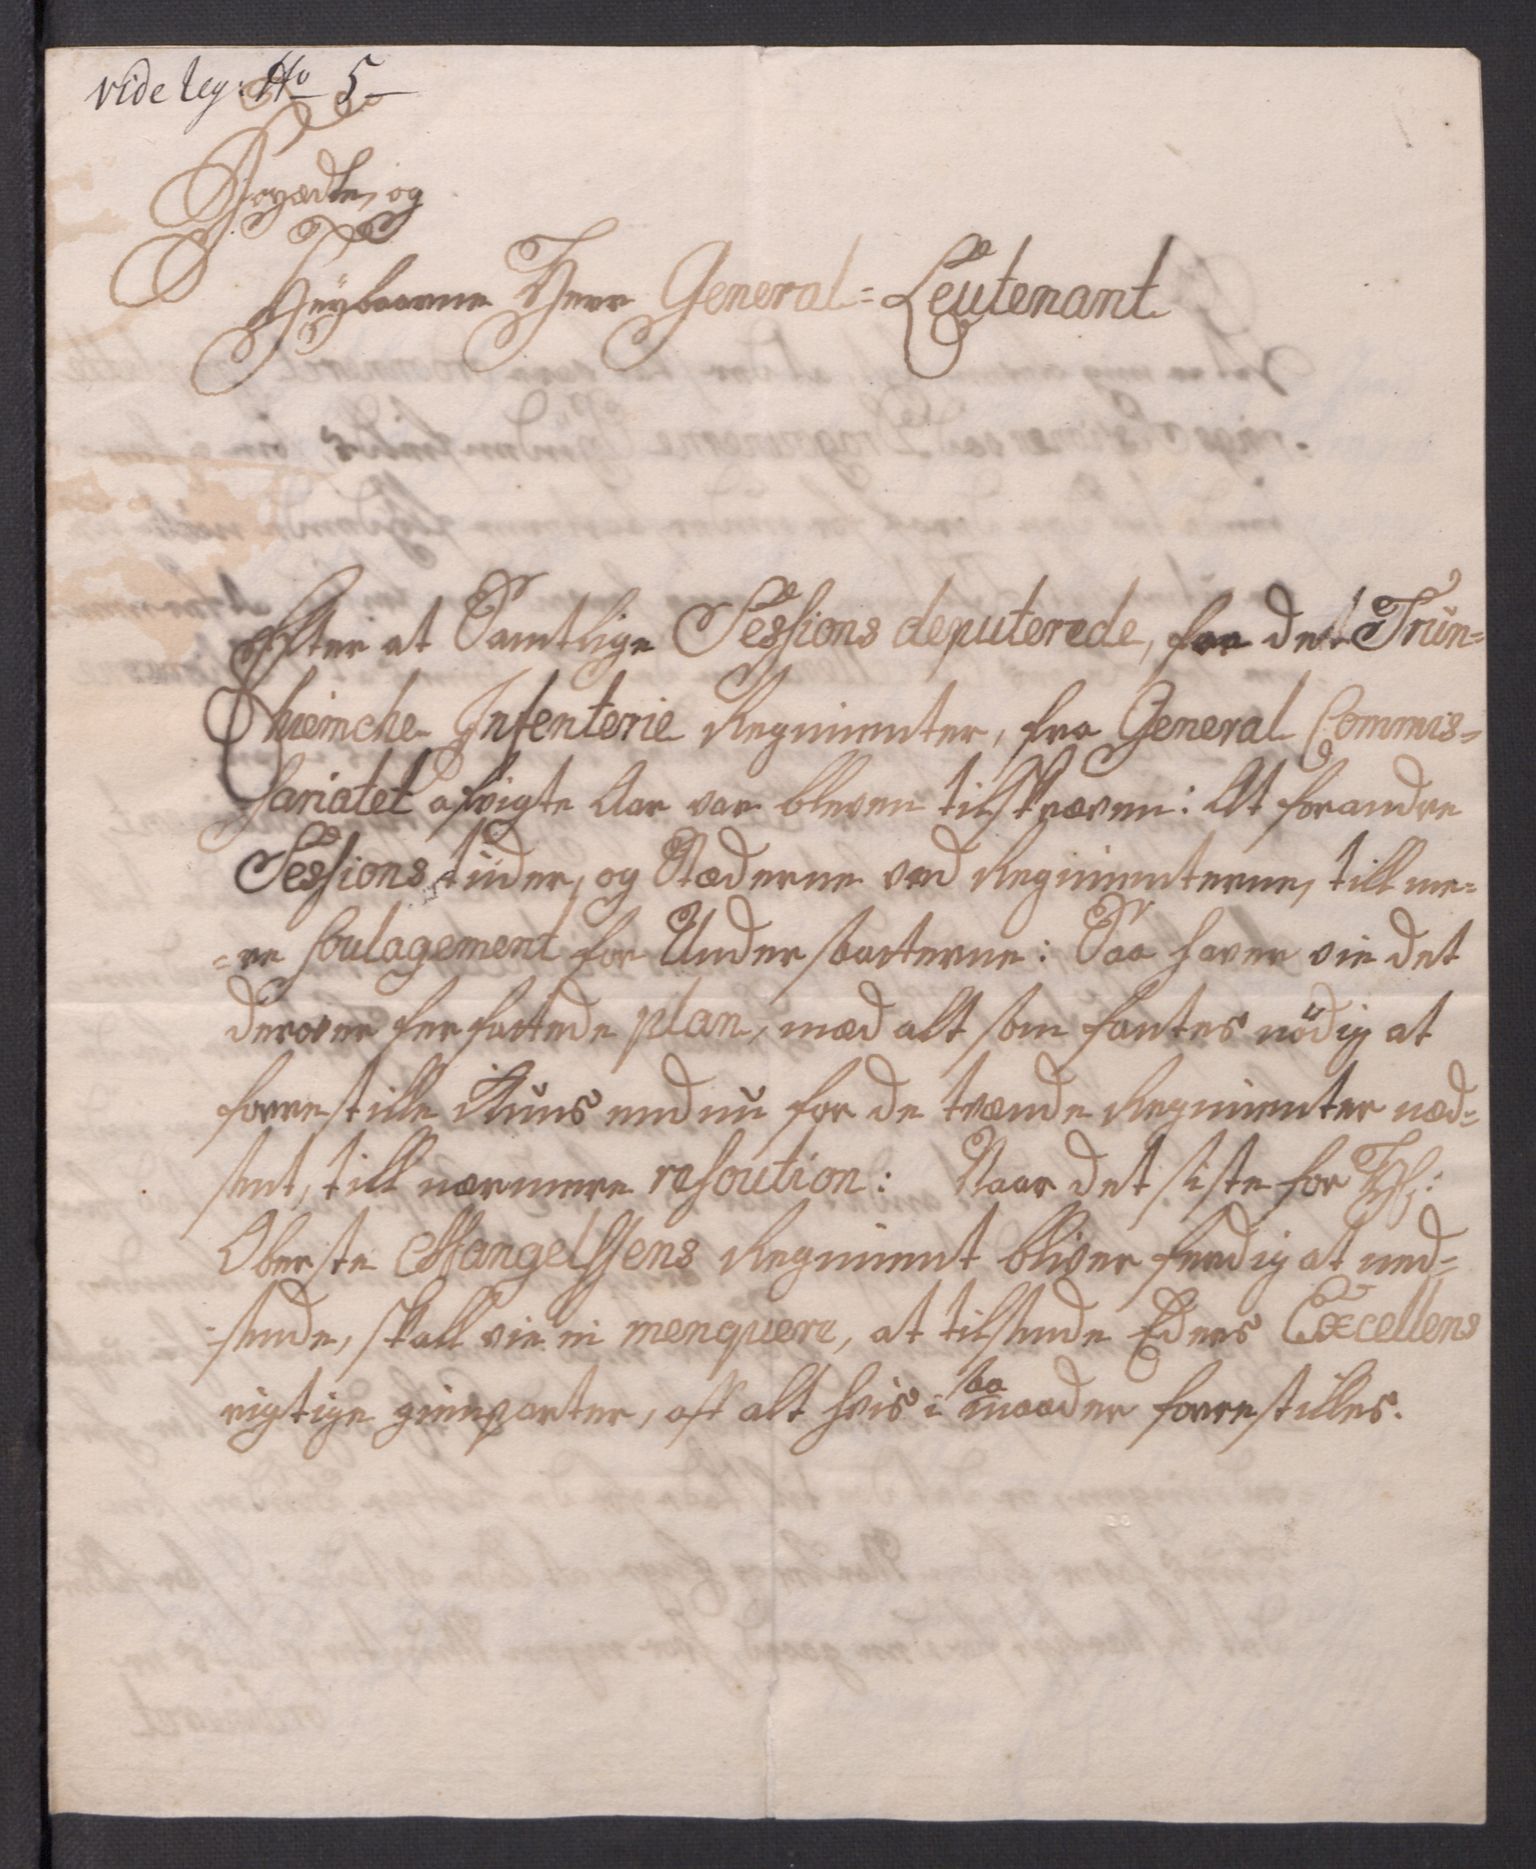 vide reg: No 5
Høyædle, og
Høybaarne Herr General-Leutenant
Efter at Samtlige Sessions deputerede, fra det Trün-
hiemche Infenterie Regimenter, fra General Commis-
sariatet afvigte Aar var bleven tilskreven: At forandre
Sessions tiider, og Stæderne ved Regimenterne, till me-
=re soulagement for Undersaatterne: Saa haver vie det
derover forfattede plan, med alt som fantes nödig at
forrestille Kuns endnu for de tvende Regimenter ned-
sent, till nærmere resoution: Naar det siste for H:
Oberste Mangelsens Regiment bliver ferdig at ned-
=sende, skall vie ei menquere, at tilsende Eders Excellens
rigtige gienparter, aff alt hvis i saa maader forrestilles.